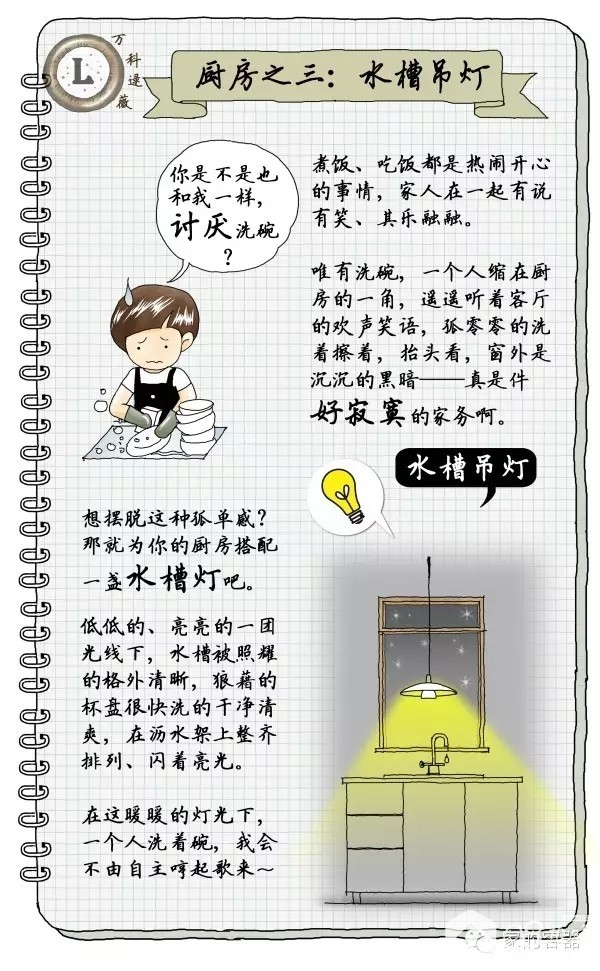 L
万科
逯薇
厨房之三：水槽吊灯
你是不是也
和我一样，
讨厌洗碗
？
煮饭、吃饭都是热闹开心
的事情，家人在一起有说
有笑、其乐融融。
唯有洗碗，一个人缩在厨
房的一角，遥遥听着客厅
的欢声笑语，孤零零的洗
着擦着，抬头看，窗外是
沉沉的黑暗——真是件
好寂寞的家务啊。
水槽吊灯
想摆脱这种孤单感？
那就为你的厨房搭配
一盏水槽灯吧。
低低的、亮亮的一团
光线下，水槽被照耀
的格外清晰，狼藉的
杯盘很快洗的干净清
爽，在沥水架上整齐
排列、闪着亮光。
在这暖暖的灯光下，
一个人洗着碗，我会
不由自主哼起歌来～
家的容器